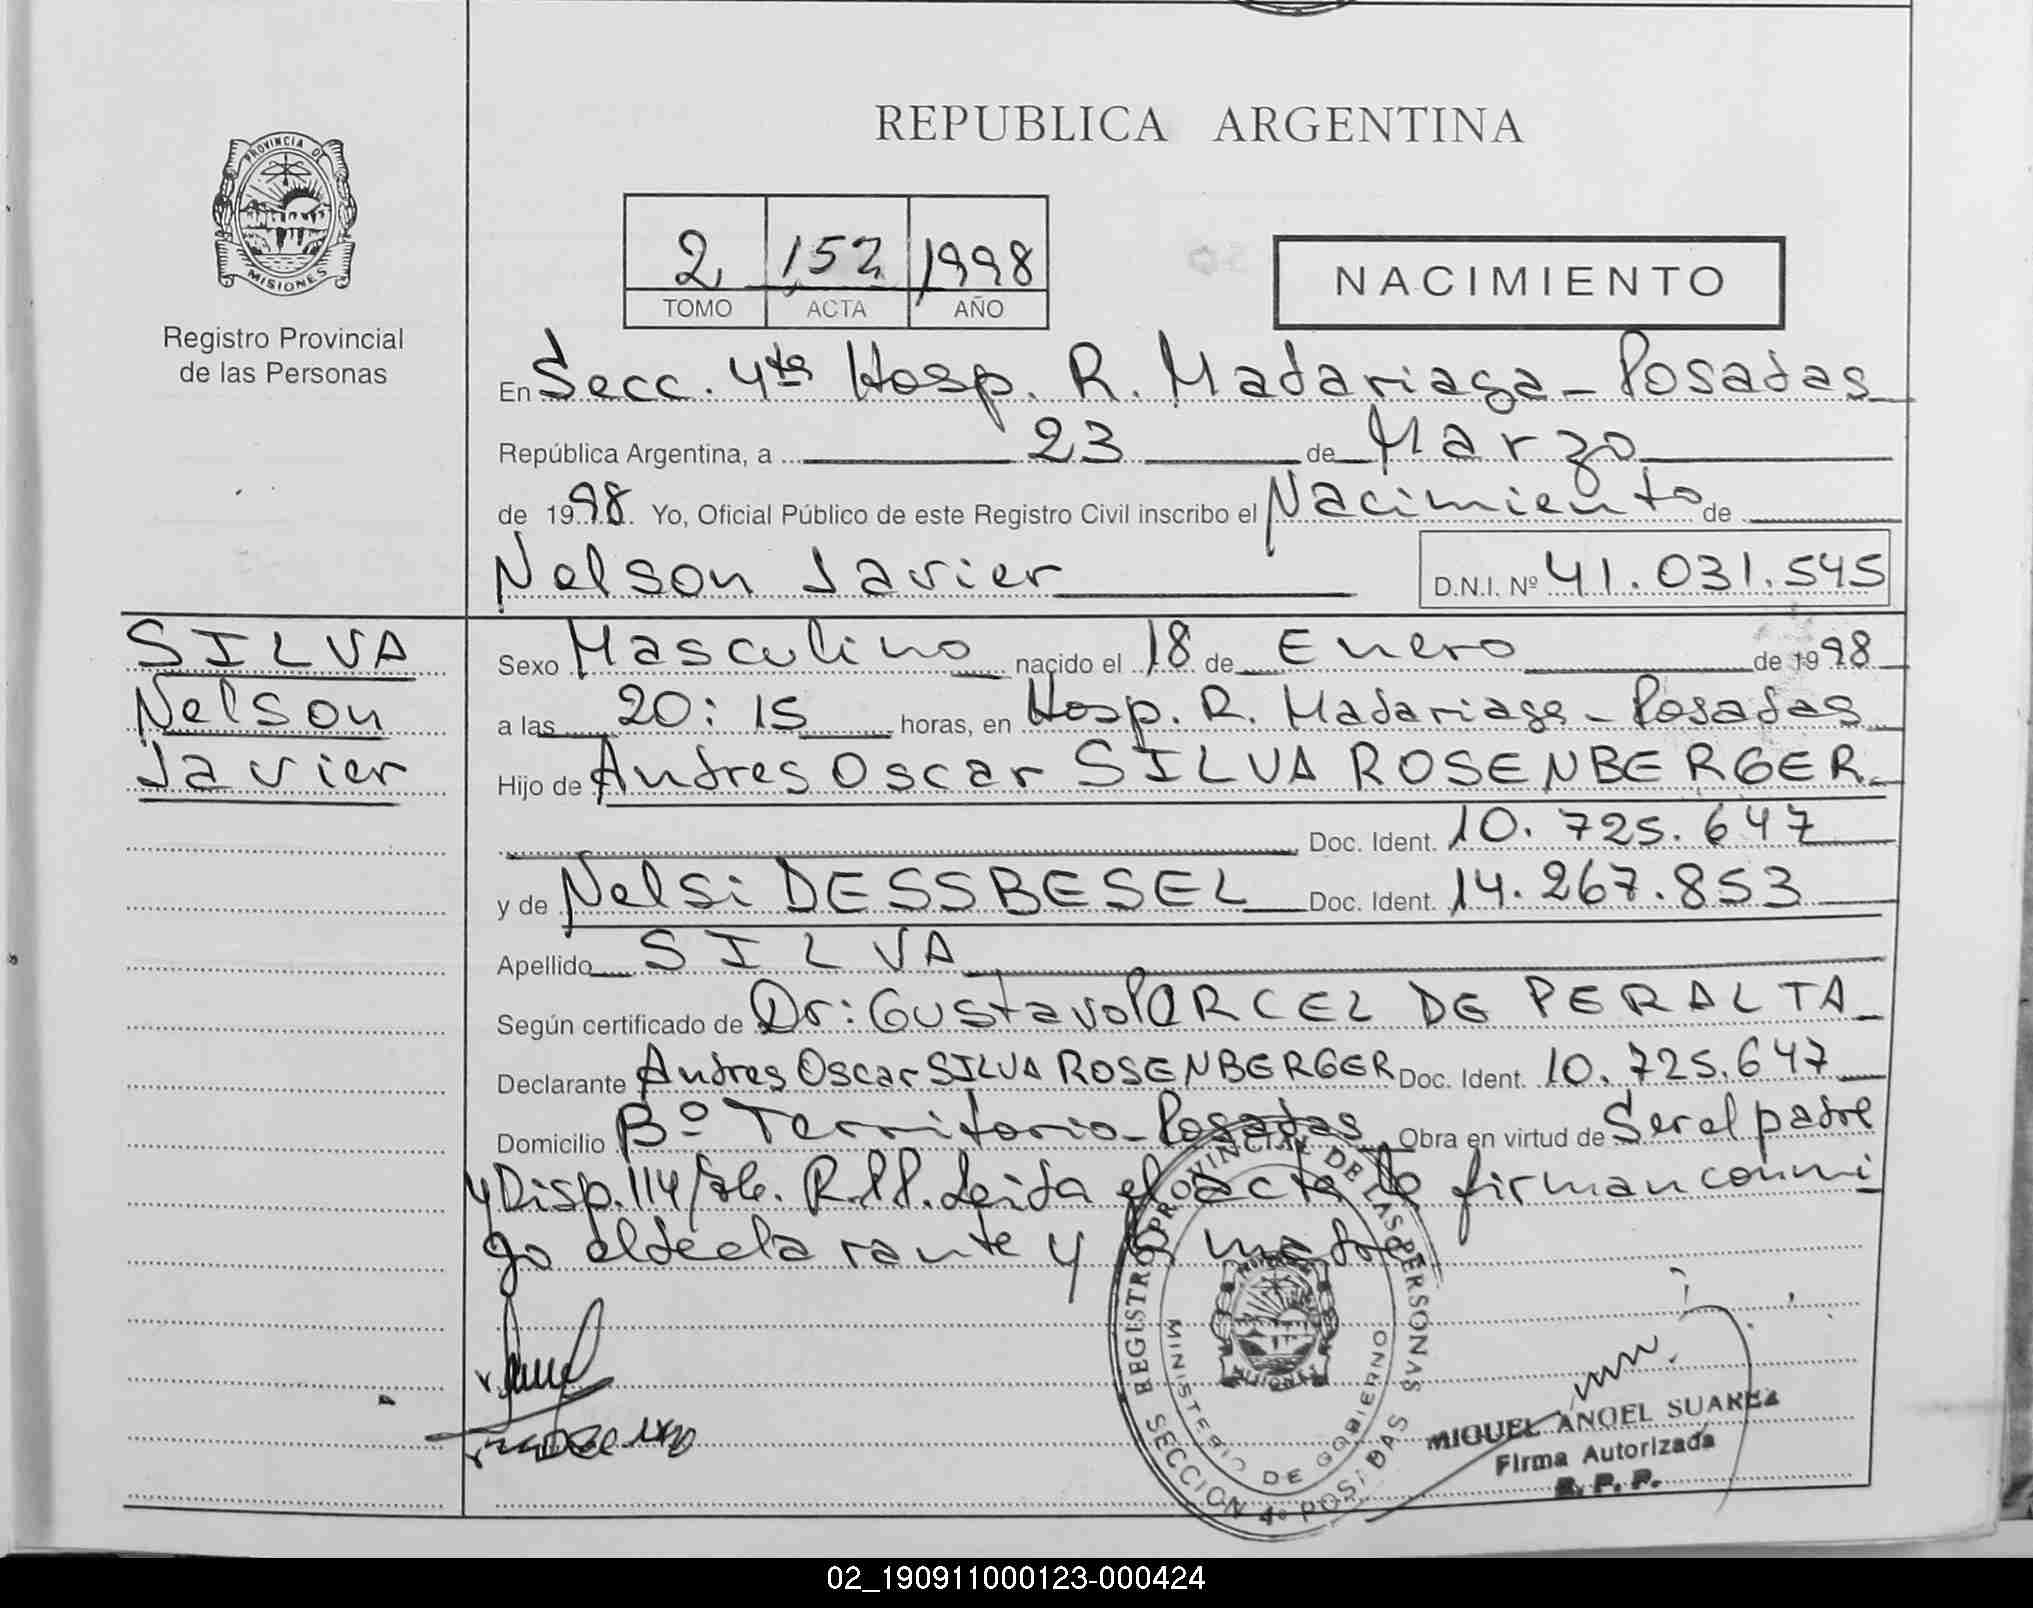 REPUBLICA ARGENTINA
PROVINCIA DE
MISIONES
Registro Provincial
de las Personas
2 152 1998
TOMO ACTA AÑO
NACIMIENTO
En Secc. 4ta Hosp. R. Madariaga - Posadas
República Argentina, a 23 de Marzo
de 1998. Yo, Oficial Público de este Registro Civil inscribo el Nacimiento de
Nelson Javier D.N.I. Nº 41.031.545
SILVA
Nelson
Javier
Sexo Masculino nacido el 18 de Enero de 1998
a las 20:15 horas, en Hosp. R. Madariaga - Posadas
Hijo de Andres Oscar SILVA ROSENBERGER
Doc. Ident. 10.725.647
y de Nelsi DESSBESEL Doc. Ident. 14.267.853
Apellido SILVA
Según certificado de Dr: Gustavo ARCEL DE PERALTA
Declarante Andres Oscar SILVA ROSENBERGER Doc. Ident. 10.725.647
Domicilio Bº Territorio - Posadas Obra en virtud de Ser el padre
y Disp. 114/ Leida el acta firman conmi
go el declarante y la madre
REGISTRO PROVINCIAL DE LAS PERSONAS
MINISTERIO DE GOBIERNO
SECCION 4º POSADAS
MIGUEL ANGEL SUAREZ
Firma Autorizada
R. P. P.
02_190911000123-000424